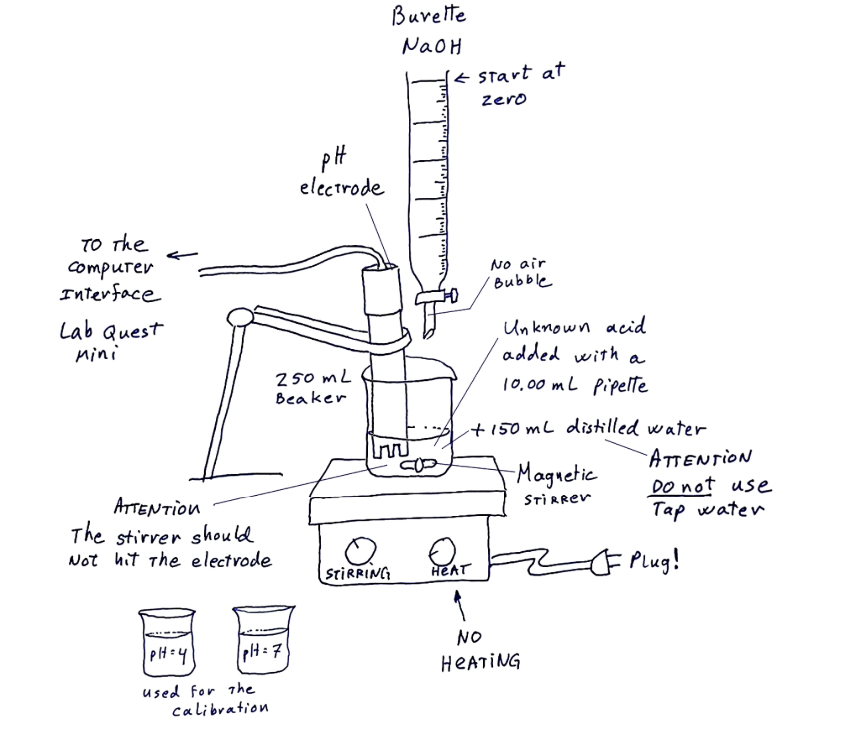 Burette
NaOH
← start at
zero
pH
electrode
To the
computer
Interface
Lab Quest
Mini
No air
Bubble
Unknown acid
added with a
10.00 mL Pipette
250 mL
Beaker
+ 150 mL distilled water
ATTENTION
Do not use
Tap water
Magnetic
STIRRER
ATTENTION
The stirrer should
Not hit The electrode
STIRRING
HEAT
Plug!
NO
HEATING
pH = 4
pH = 7
used for The
calibration